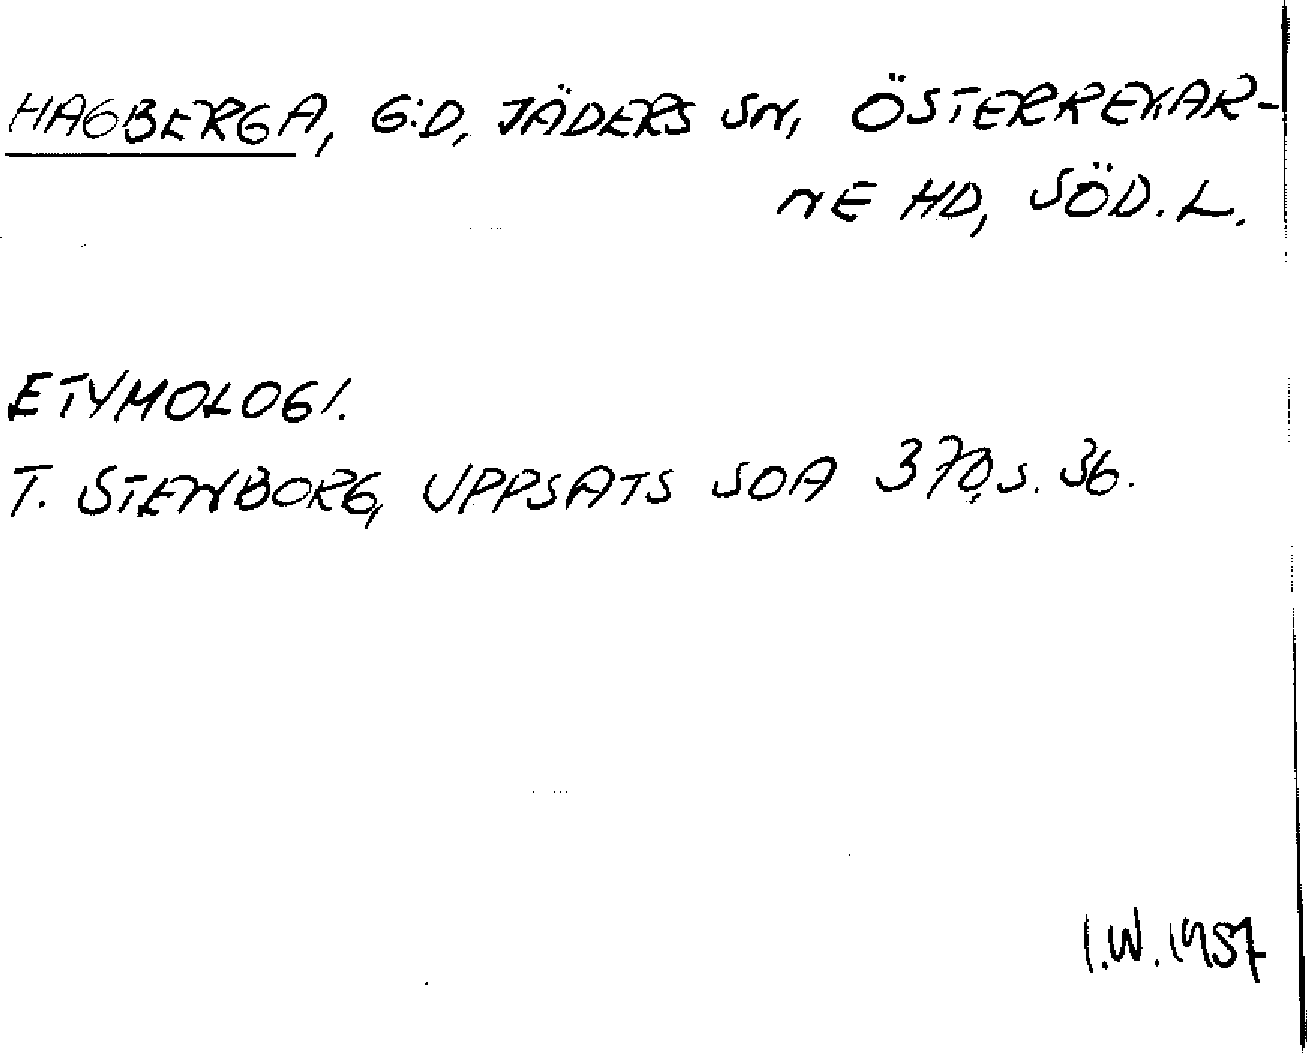 HAGBERGA, G:D, JÄDERS SN, ÖSTERREKAR-
NE HD, SÖD.L.
ETYMOLOGI.
T. STENBORG, UPPSATS SOA 370, S. 36.
I.W. 1957